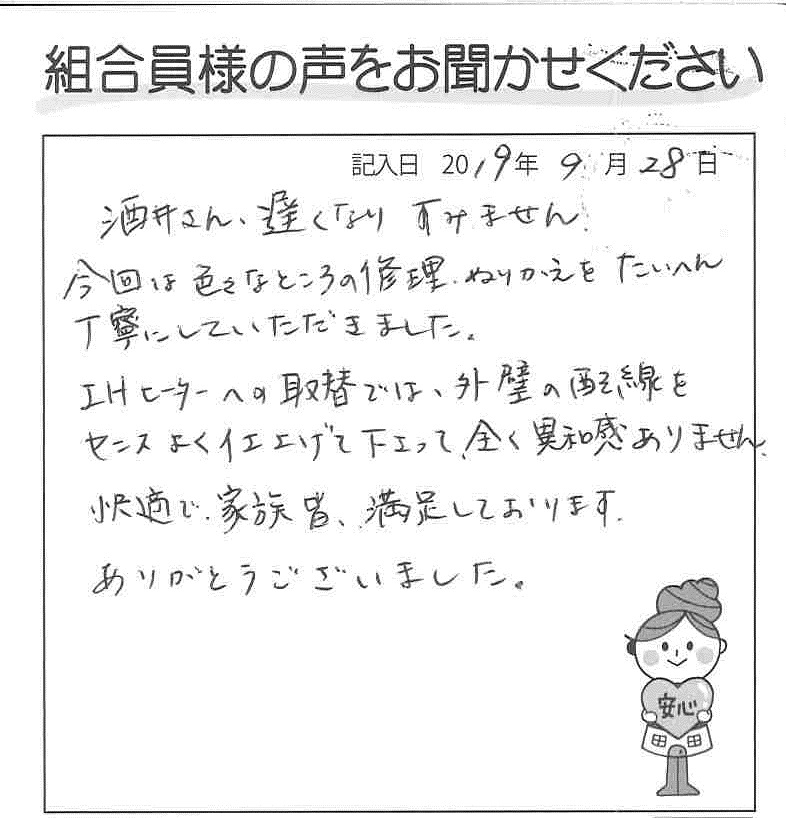 組合員様の声をお聞かせください
記入日 2019年 9月 28日
酒井さん、遅くなり すみません.
今回は色々なところの修理、ぬりかえを たいへん
丁寧にしていただきました。
IHヒーターへの取替では、外壁の配線を
センスよく仕上げて下さって、全く異和感ありません。
快適で、家族皆、満足しております.
ありがとうございました。
安心